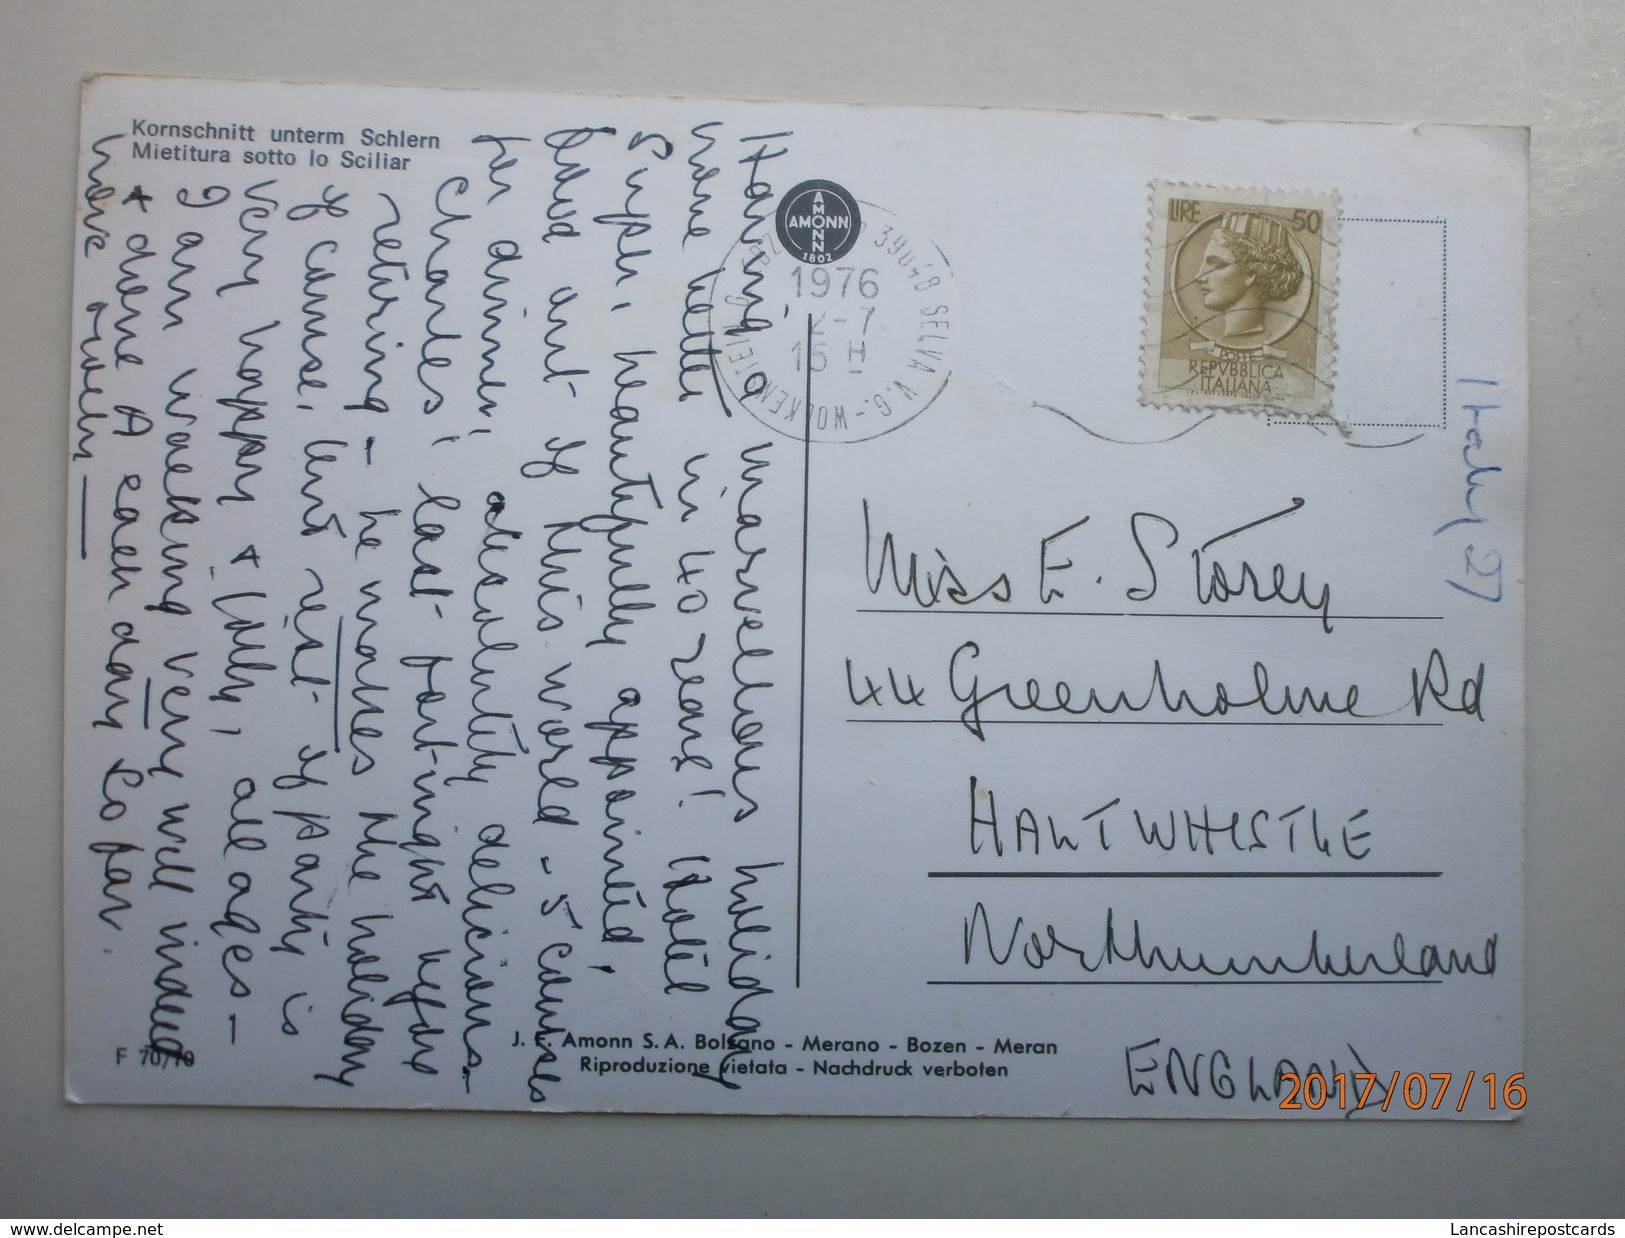 Kornschnitt unterm Schlern
Mietitura sotto lo Sciliar
Having a marvellous holiday
never better in 40 years! Hotel
Super, beautifully appointed,
food out of this world - 5 courses
for dinner, absolutely delicious -
Charles' last fortnight before
retiring - he makes the holiday
of course, but rest of party is
very happy + jolly, all ages -
I am walking very well indeed
+ done A each day so far.
more
AMONN
AMONN
1802
39048 SELVA V.G.-WOLKENSTEIN
1976
2-7
15 H
LIRE 50
POSTE
REPVBBLICA
ITALIANA
Italy 27
Miss E. Storey
44 Greenholme Rd
HALTWHISTLE
Northumberland
ENGLAND
J. F. Amonn S.A. Bolzano - Merano - Bozen - Meran
Riproduzione vietata - Nachdruck verboten
F 70/10
2017/07/16
www.delcampe.net
Lancashirepostcards